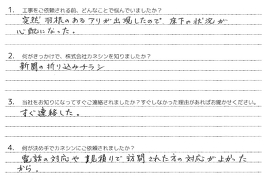 1. 工事をご依頼される前、どんなことで悩んでいましたか？
突然 羽根のあるアリが出現したので 床下の状況が
心配になった。
2. 何がきっかけで、株式会社カネシンを知りましたか？
新聞の折り込みチラシ
3. 当社をお知りになってすぐご連絡されましたか？すぐしなかった理由があればお聞かせください。
すぐ連絡した。
4. 何が決め手でカネシンにご依頼されましたか？
電話の対応や見積りで訪問された方の対応がよかった
から。